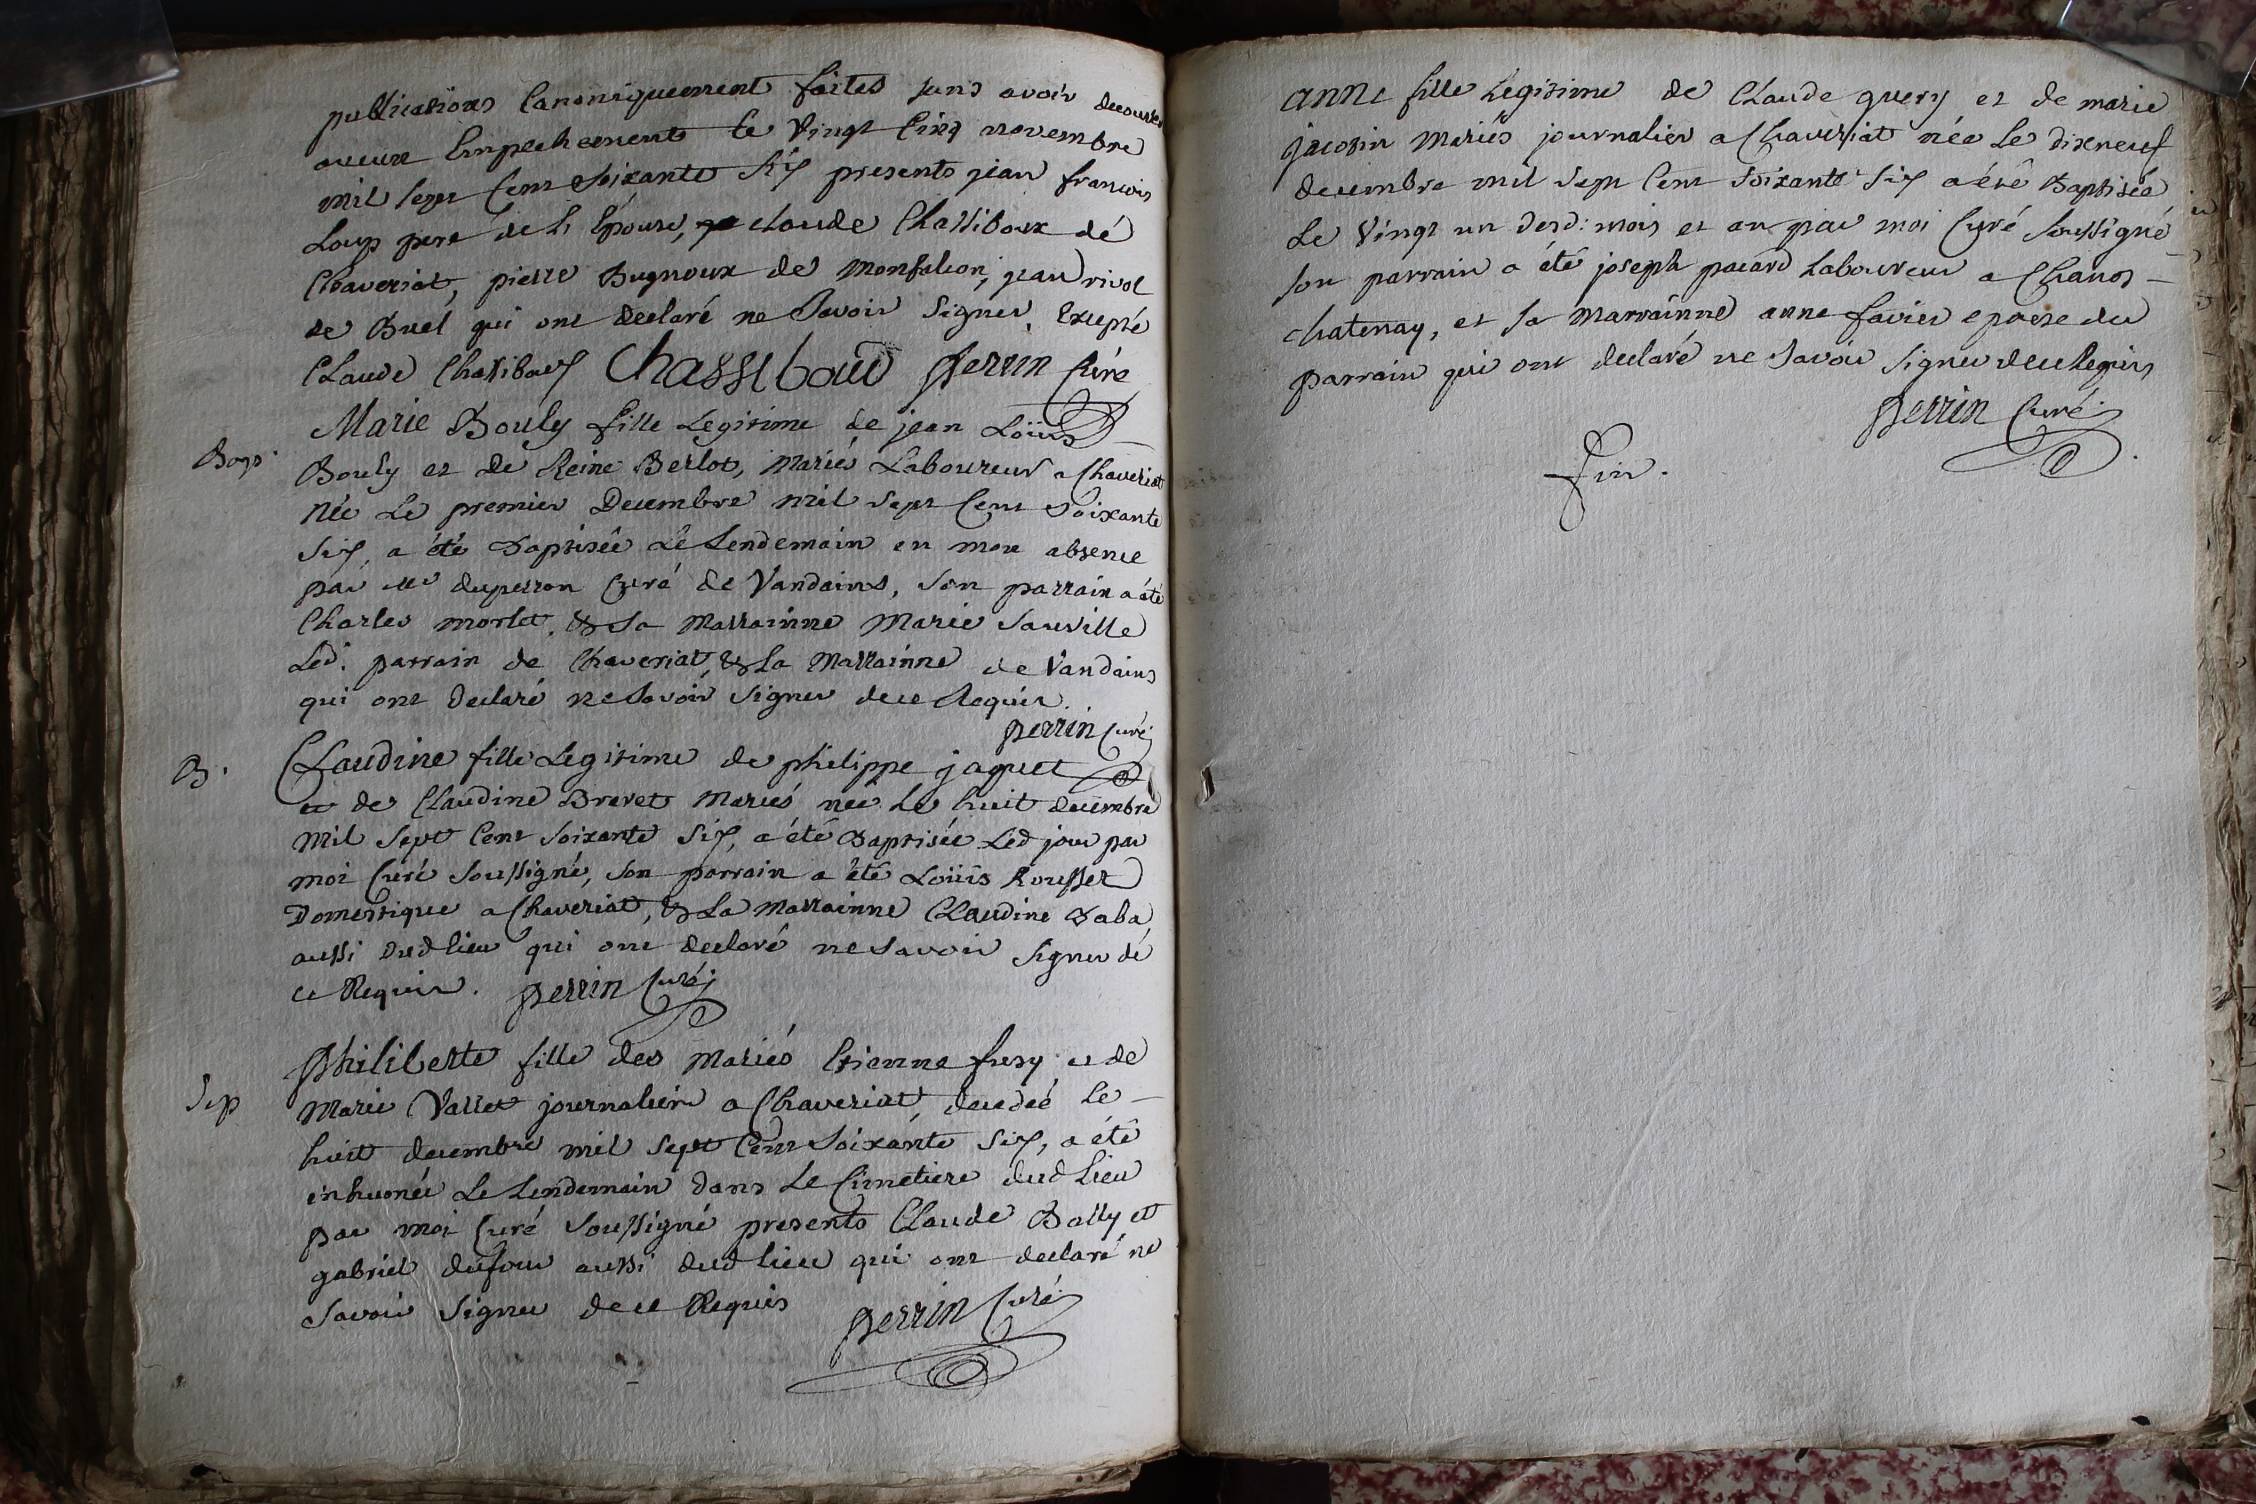 publications Canoniquement faites sans avoir decouvert
aucun Empechement le Vingt Cinq novembre
mil sept Cent soixante Six presents jean francois
Loup pere de l'Epouse, claude Chassiboux dé
Chaveriat, pierre Bugnoux de Monfalcon, jean rivol
de Buel qui ont declaré ne Savoir Signer, Excepté
CLaude Chassiboux Chassiboud perrin Curé
Marie Bouly fille Legitime de jean Loüis
Bouly et de Reine Berlot, Mariés Laboureur a Chaveriat
Née Le premier Decembre mil sept Cent Soixante
Six, a été Baptisée Le Lendemain en mon absence
par Mr duperron Curé de Vandains, Son parrain a été
Charles morlet, & Sa Marrainne Marie Sauville
Led. parrain de Chaveriat, & La Marrainne de Vandains
qui ont Declaré ne Savoir Signer de ce Requis.
perrin Curé
B.
CLaudine fille Legitime de philippe jaquet
et de CLaudine Brevet Mariés née Le huit decembre
Mil Sept Cent Soixante Six, a été Baptisée Led jour par
moi Curé Soussigné, Son parrain a été Loüis Rousset
Domestique a Chaveriat, & La Marrainne CLaudine Daba
aussi Dud lieu qui ont declaré ne Savoir Signer dé
ce Requis. perrin Curé
Philiberte fille des Mariés Etienne fusy et de
Sep Marie Vallet journalier a Chaveriat, decedeé Le
huit decembre mil Sept Cent Soixante Six, a été
inhumée Le Lendemain dans Le Cimetiere dud Lieu
par moi Curé Soussigné presents Claude Bally et
gabriel dufour aussi dud lieu qui ont declaré ne
Savoir Signer de ce Requis perrin Curé
anne fille Legitime de CLaude query et de marie
jacotin Mariés journalier a Chaveriat née Le dixneuf
decembre mil Sept Cent Soixante Six a été Baptisée
Le Vingt un desd: mois et an par moi Curé Soussigné
Son parrain a été joseph pacard Laboureur a Chanos
chatenay, et Sa Marrainne anne favier epouse du
parrain qui ont declaré ne Savoir Signer de ce Requis
perrin Curé
fin.